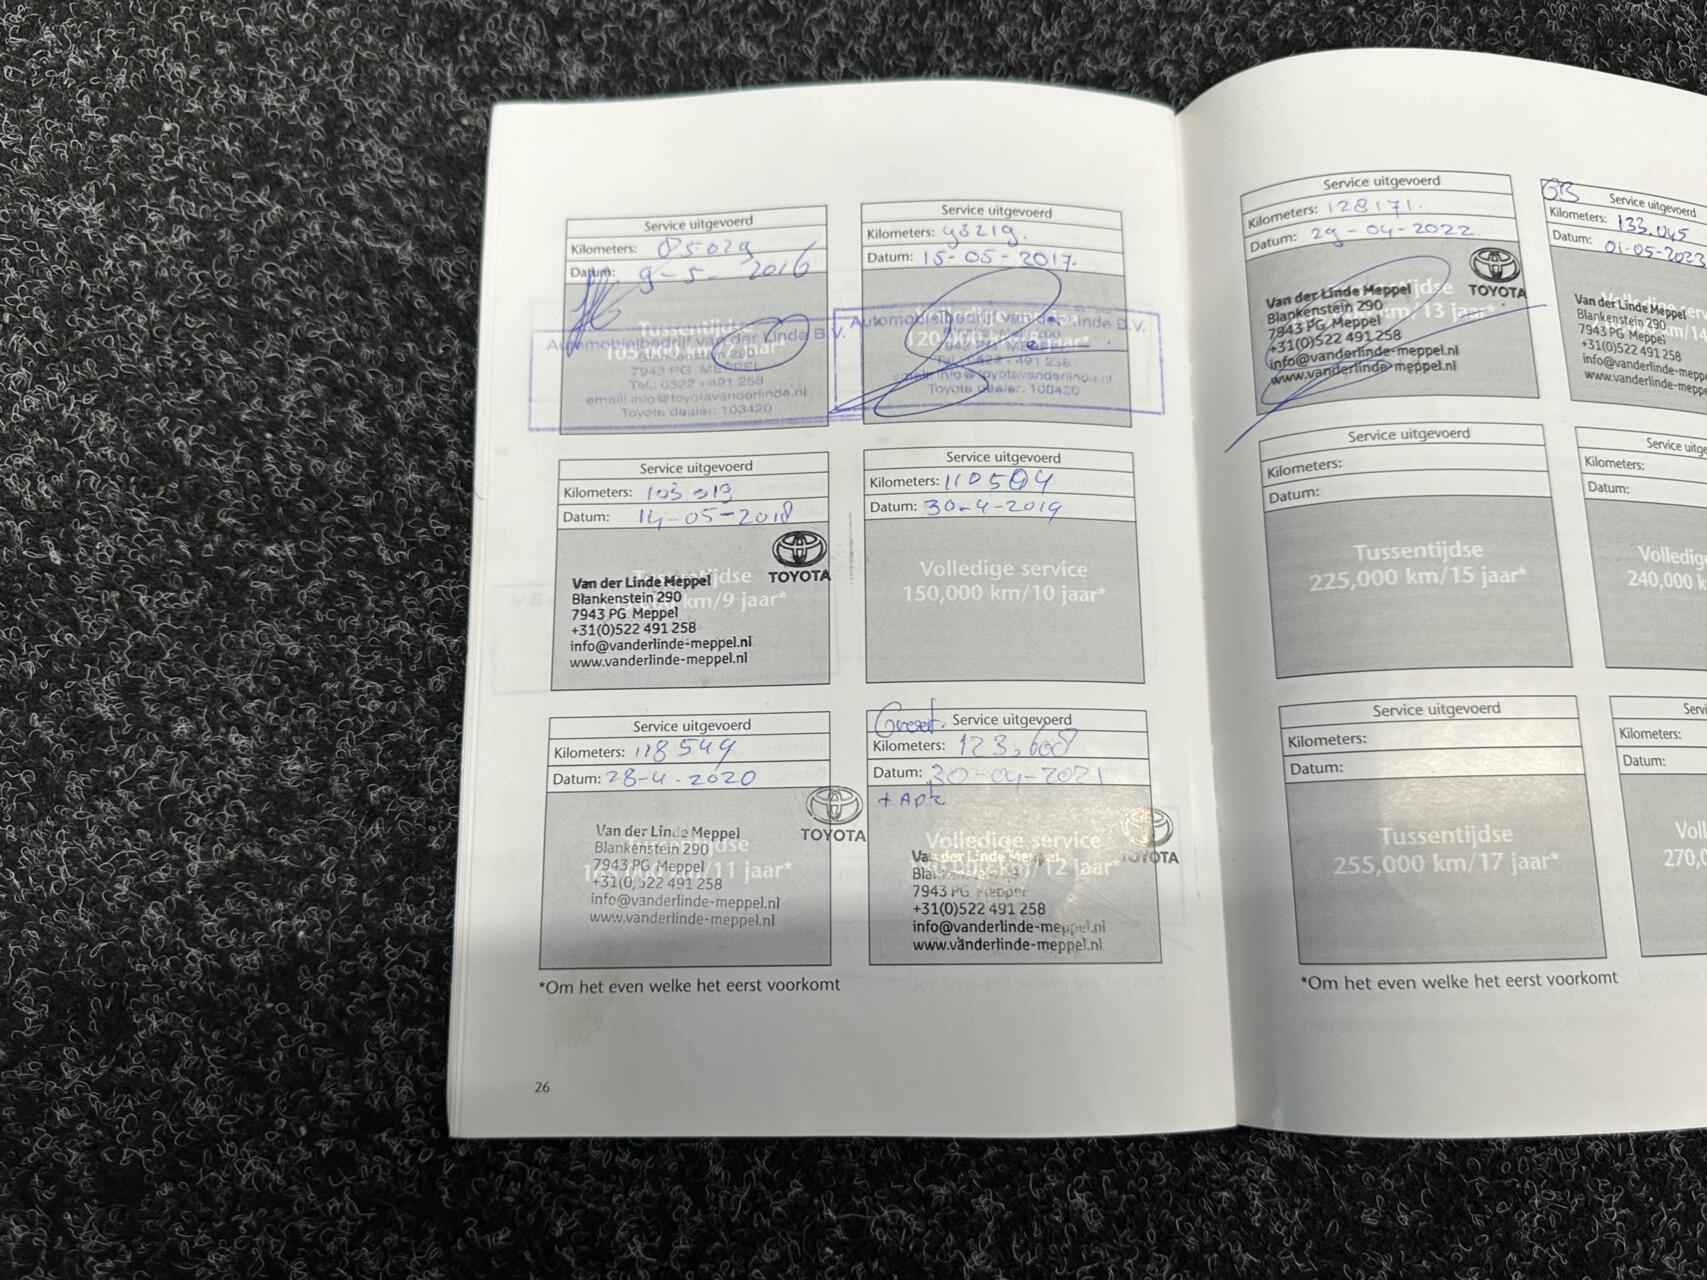 Service uitgevoerd
Kilometers: 85029
Datum: 9-5-2016
Tussentijdse
105,000 km/7 jaar*
Automobielbedrijf van der Linde B.V.
7943 PG MEPPEL
Tel.: 0522 - 491 258
email: info@toyotavanderlinde.nl
Toyota dealer: 103420
Service uitgevoerd
Kilometers: 93219.
Datum: 15-05-2017.
Automobielbedrijf van der Linde B.V.
7943 PG MEPPEL
Tel.: 0522 - 491 258
email: info@toyotavanderlinde.nl
Toyota dealer: 103420
Service uitgevoerd
Kilometers: 103 013
Datum: 14-05-2018
TOYOTA
Tussentijdse
km/9 jaar*
Van der Linde Meppel
Blankenstein 290
7943 PG Meppel
+31(0)522 491 258
info@vanderlinde-meppel.nl
www.vanderlinde-meppel.nl
Service uitgevoerd
Kilometers: 110504
Datum: 30-4-2019
Volledige service
150,000 km/10 jaar*
Service uitgevoerd
Kilometers: 118549
Datum: 28-4-2020
TOYOTA
Tussentijdse
km/11 jaar*
Van der Linde Meppel
Blankenstein 290
7943 PG Meppel
+31(0)522 491 258
info@vanderlinde-meppel.nl
www.vanderlinde-meppel.nl
Groot. Service uitgevoerd
Kilometers: 123,608
Datum: 30-04-2021
+ Apk
TOYOTA
Volledige service
km/12 jaar*
Van der Linde Meppel
7943 PG Meppel
+31(0)522 491 258
info@vanderlinde-meppel.nl
www.vanderlinde-meppel.nl
*Om het even welke het eerst voorkomt
26
Service uitgevoerd
Kilometers: 128171.
Datum: 29-04-2022
TOYOTA
km/13 jaar*
Van der Linde Meppel
Blankenstein 290
7943 PG Meppel
+31(0)522 491 258
info@vanderlinde-meppel.nl
www.vanderlinde-meppel.nl
Service uitgevoerd
Kilometers: 133.045
Datum: 01-05-2023
Van der Linde Meppel
Blankenstein 290
7943 PG Meppel
+31(0)522 491 258
info@vanderlinde-mepp
www.vanderlinde-mepp
Service uitgevoerd
Kilometers:
Datum:
Tussentijdse
225,000 km/15 jaar*
Service uitge
Kilometers:
Datum:
Volledig
240,000
Service uitgevoerd
Kilometers:
Datum:
Tussentijdse
255,000 km/17 jaar*
Servi
Kilometers:
Datum:
Voll
270,0
*Om het even welke het eerst voorkomt